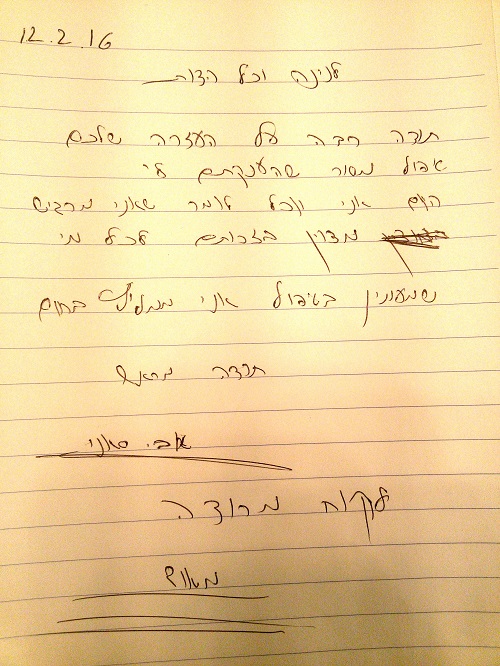 12.2.16
לנינה וכל הצוות
תודה רבה על העזרה שלכם
טיפול מסור שהענקתם לי
היום אני יוכל לומר שאני מרגיש
מצוין בזכותם לכל מי
שמעוניין בטיפול אני ממליץ בחום
תודה מראש
אבי סאני
לקוח מרוצה
מאוד